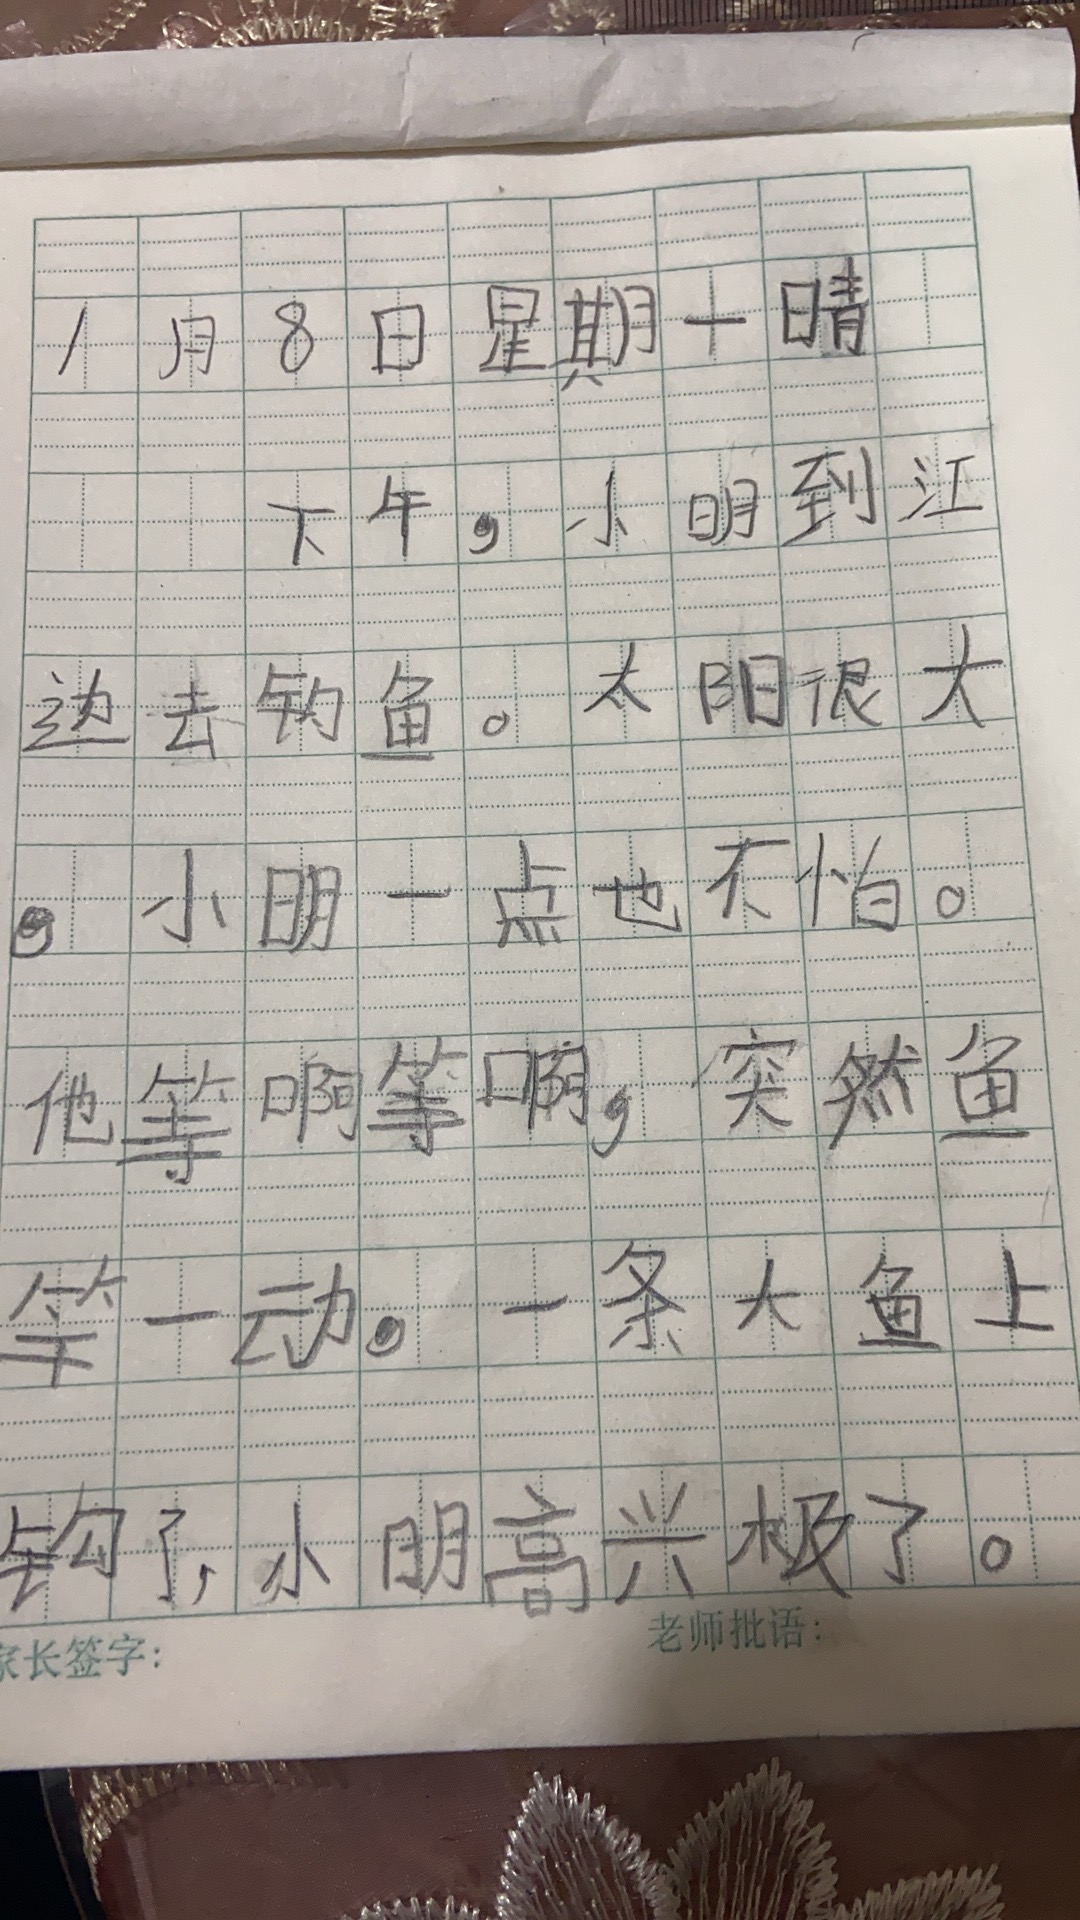 1月8日星期十晴
下午，小明到江
边去钓鱼。太阳很大
，小明一点也不怕。
他等啊等啊，突然鱼
竿一动，一条大鱼上
钩了，小明高兴极了。
家长签字：
老师批语：